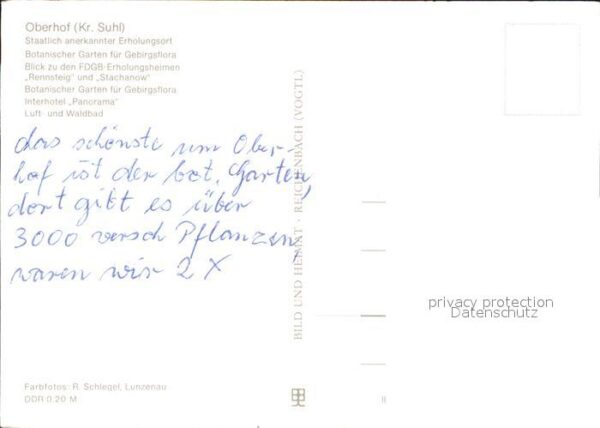 Oberhof (Kr. Suhl)
Staatlich anerkannter Erholungsort
Botanischer Garten für Gebirgsflora
Blick zu den FDGB-Erholungsheimen
„Rennsteig“ und „Stachanow“
Botanischer Garten für Gebirgsflora
Interhotel „Panorama“
Luft- und Waldbad
das schönste um Ober-
hof ist der bot. Garten,
dort gibt es über
3000 versch Pflanzen,
waren wir 2 X
BILD UND HEIMAT · REICHENBACH (VOGTL)
privacy protection
Datenschutz
Farbfotos: R. Schlegel, Lunzenau
DDR 0,20 M
II